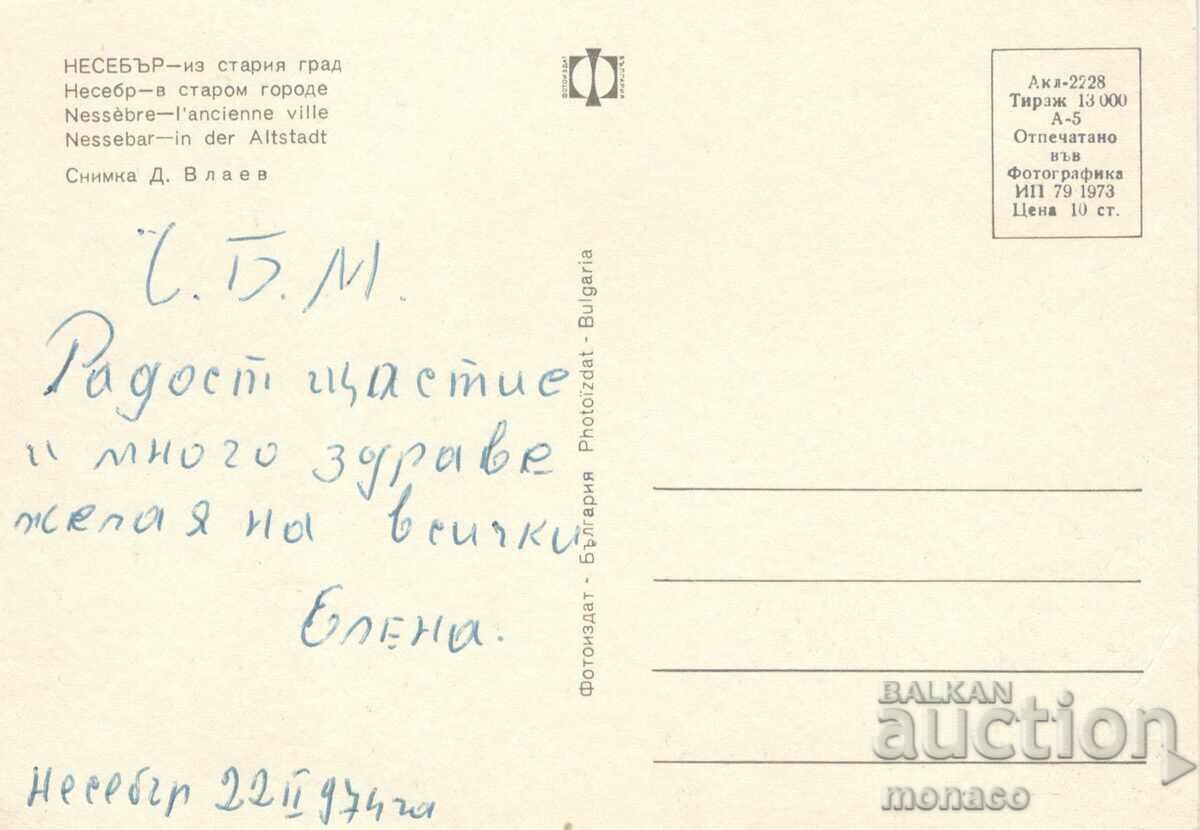 НЕСЕБЪР—из стария град
Несебр—в старом городе
Nessèbre—l'ancienne ville
Nessebar—in der Altstadt
Снимка Д. Влаев
Ч.Б.М.
Радост щастие
и много здраве
желая на всички
Елена.
Несебър 22 II 974 га
Фотоиздат - България Photoïzdat - Bulgaria
ФОТОИЗДАТ
БЪЛГАРИЯ
Акл-2228
Тираж 13 000
А-5
Отпечатано
във
Фотографика
ИП 79 1973
Цена 10 ст.
BALKAN
auction
monaco